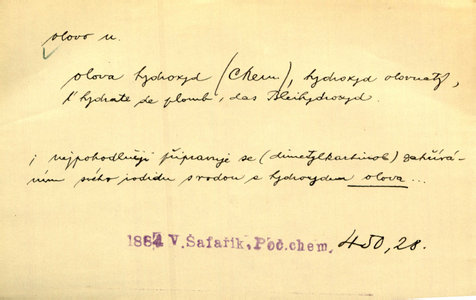 olovo n.
olova hydroxyd (Chem), hydroxyd olovnatý,
l'hydrate de plomb, das Bleihydroxyd.
i nejpohodlněji připravuje se (dimetylkarbinol) zahřívá-
ním svého iodidu s vodou a hydroxydem olova ...
1867 V. Šafařík, Poč. chem. 450, 28.